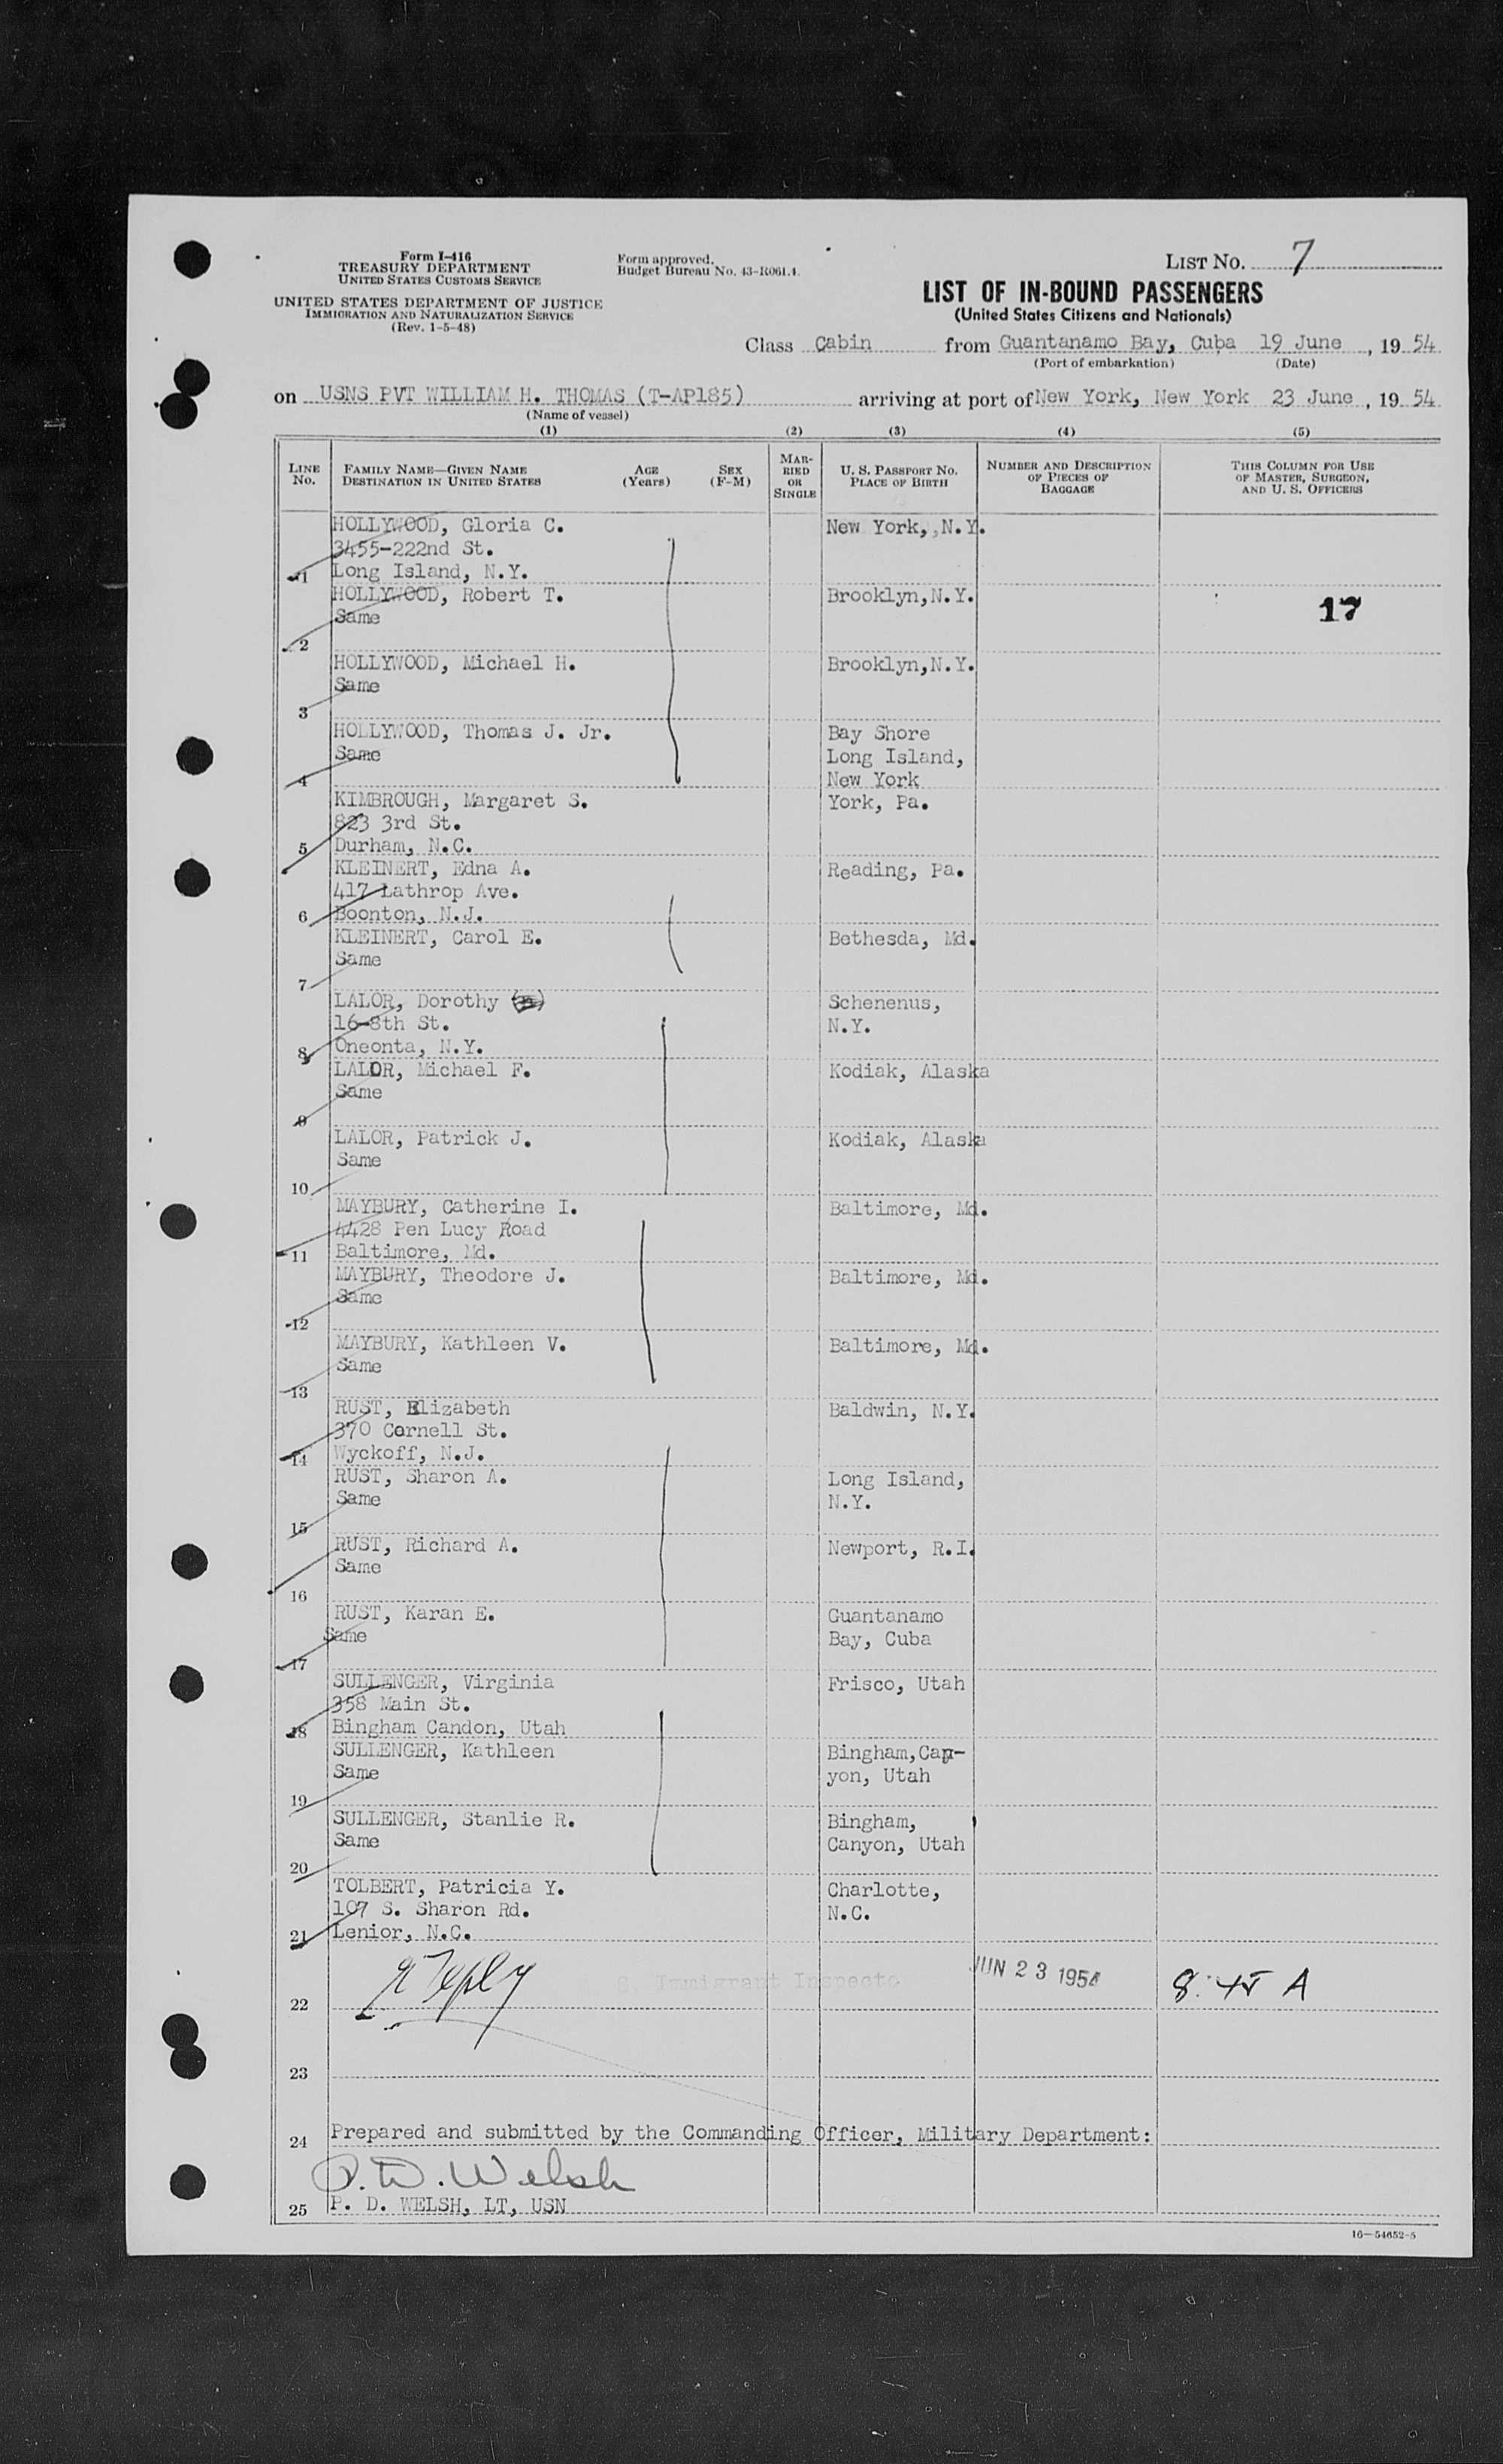 Form I-416
TREASURY DEPARTMENT
UNITED STATES CUSTOMS SERVICE
UNITED STATES DEPARTMENT OF JUSTICE
IMMIGRATION AND NATURALIZATION SERVICE
(Rev. 1-5-48)
Form approved.
Budget Bureau No. 43-R061.4.
LIST NO. 7
LIST OF IN-BOUND PASSENGERS
(United States Citizens and Nationals)
Class Cabin from Guantanamo Bay, Cuba 19 June, 19 54
(Port of embarkation) (Date)
on USNS PVT WILLIAM H. THOMAS (T-AP185) arriving at port of New York, New York 23 June, 19 54
(Name of vessel)
(1) (2) (3) (4) (5)
LINE NO.
FAMILY NAME—GIVEN NAME
DESTINATION IN UNITED STATES
AGE (Years)
SEX (F-M)
MARRIED OR SINGLE
U. S. PASSPORT NO.
PLACE OF BIRTH
NUMBER AND DESCRIPTION OF PIECES OF BAGGAGE
THIS COLUMN FOR USE OF MASTER, SURGEON, AND U. S. OFFICERS
HOLLYWOOD, Gloria C. New York, N.Y.
3455-222nd St.
1 Long Island, N.Y.
HOLLYWOOD, Robert T. Brooklyn,N.Y. 17
Same
2
HOLLYWOOD, Michael H. Brooklyn,N.Y.
Same
3
HOLLYWOOD, Thomas J. Jr. Bay Shore
Same Long Island,
4 New York
KIMBROUGH, Margaret S. York, Pa.
823 3rd St.
5 Durham, N.C.
KLEINERT, Edna A. Reading, Pa.
417 Lathrop Ave.
6 Boonton, N.J.
KLEINERT, Carol E. Bethesda, Md.
Same
7
LALOR, Dorothy Schenenus,
16-8th St. N.Y.
8 Oneonta, N.Y.
LALOR, Michael F. Kodiak, Alaska
Same
9
LALOR, Patrick J. Kodiak, Alaska
Same
10
MAYBURY, Catherine I. Baltimore, Md.
4428 Pen Lucy Road
11 Baltimore, Md.
MAYBURY, Theodore J. Baltimore, Md.
Same
12
MAYBURY, Kathleen V. Baltimore, Md.
Same
13
RUST, Elizabeth Baldwin, N.Y.
370 Cornell St.
14 Wyckoff, N.J.
RUST, Sharon A. Long Island,
Same N.Y.
15
RUST, Richard A. Newport, R.I.
Same
16
RUST, Karan E. Guantanamo
Same Bay, Cuba
17
SULLENGER, Virginia Frisco, Utah
358 Main St.
18 Bingham Candon, Utah
SULLENGER, Kathleen Bingham,Can-
Same yon, Utah
19
SULLENGER, Stanlie R. Bingham,
Same Canyon, Utah
20
TOLBERT, Patricia Y. Charlotte,
107 S. Sharon Rd. N.C.
21 Lenior, N.C.
S. Immigrant Inspecto JUN 23 1954 8:45 A
22
23
24 Prepared and submitted by the Commanding Officer, Military Department:
P. D. Welsh
25 P. D. WELSH, LT, USN
16—54652-5